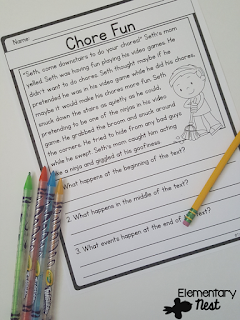 Name:
Chore Fun
"Seth, come downstairs to do your chores!" Seth's mom
yelled. Seth was having fun playing his video games. He
didn't want to do chores. Seth thought maybe if he
pretended he was in his video game while he did his chores,
maybe it would make his chores more fun. Seth
snuck down the stairs as quietly as he could,
pretending to be one of the ninjas in his video
game. He grabbed the broom and snuck around
the corners. He tried to hide from any bad guys
while he swept. Seth's mom caught him acting
like a ninja and giggled at his goofiness
What happens at the beginning of the text?
2. What happens in the middle of the text?
3. What events happen at the end of the text?
Elementary
Nest